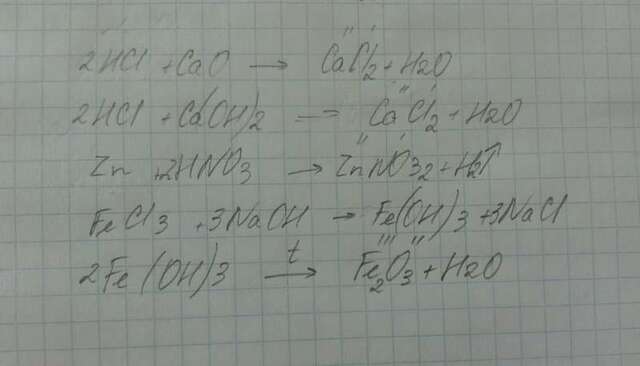 2HCl + CaO → CaCl2 + H2O
2HCl + Ca(OH)2 → CaCl2 + H2O
Zn + 2HNO3 → ZnNO32 + H2↑
FeCl3 + 3NaOH → Fe(OH)3 + 3NaCl
2Fe(OH)3 t→ Fe2O3 + H2O